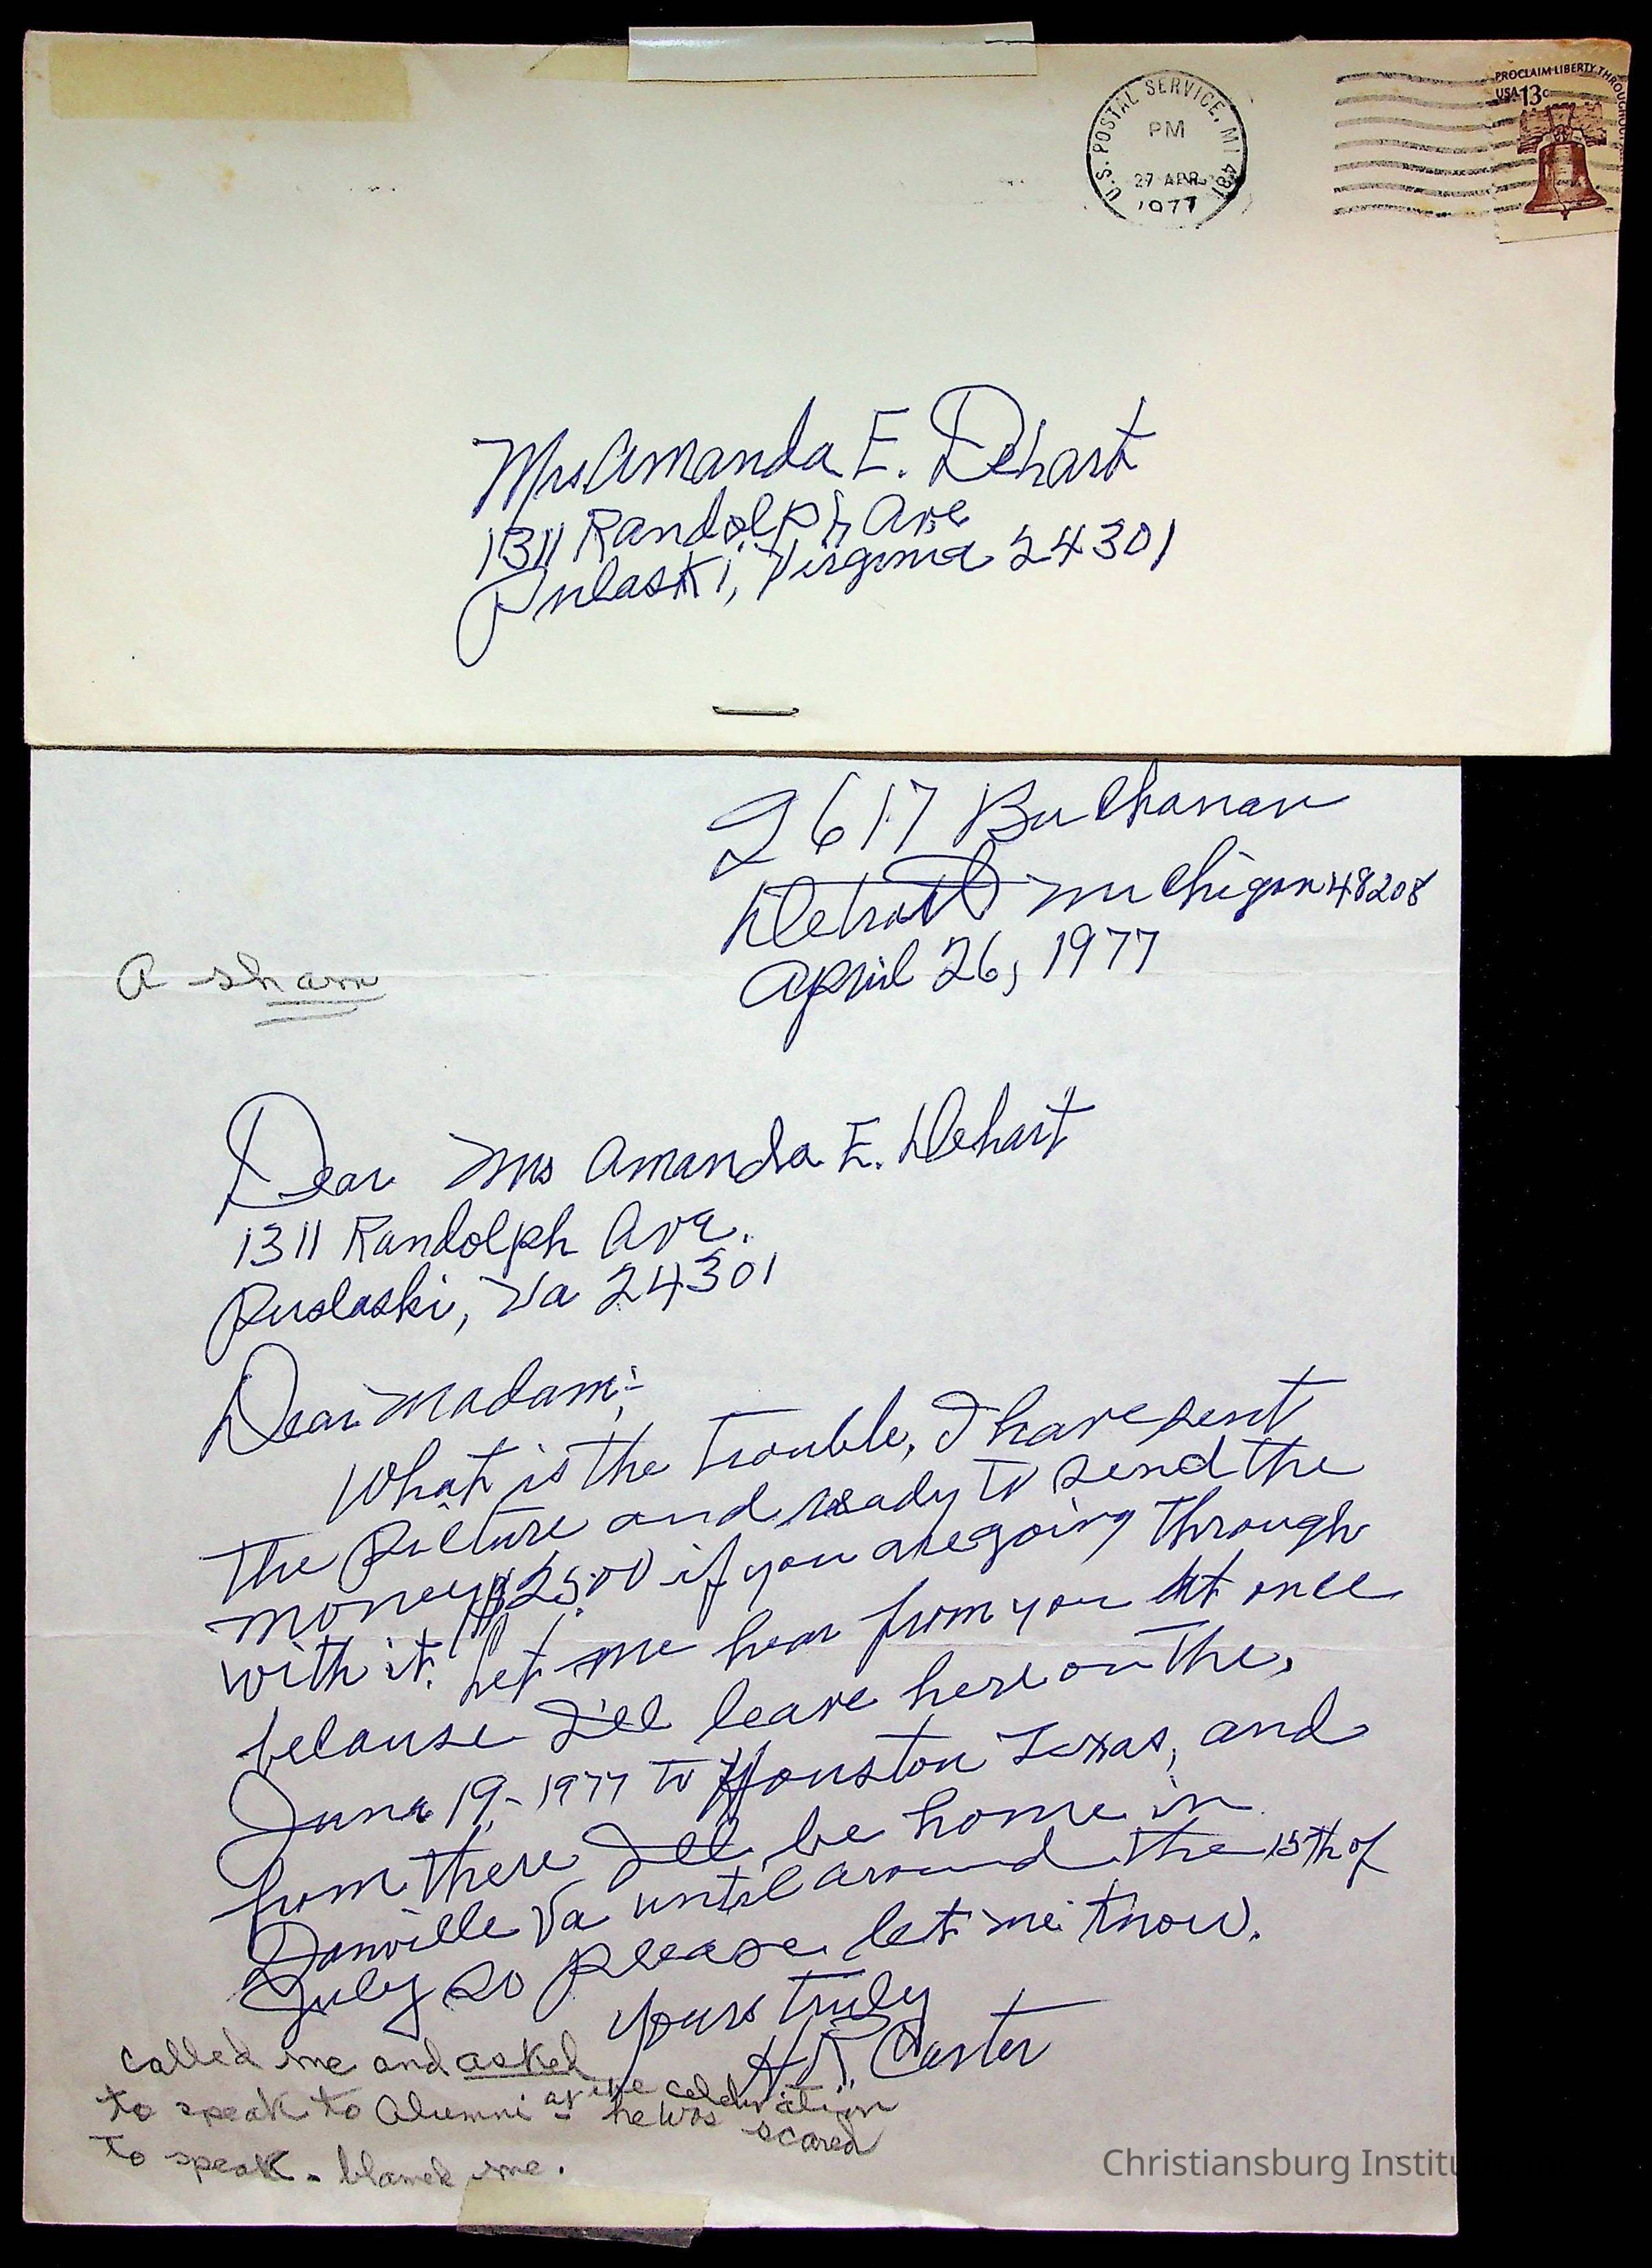 U.S. POSTAL SERVICE, MI 481
PM
27 APR
1977
PROCLAIM LIBERTY THROUGHOUT
USA 13c
Mrs. Amanda E. Dehart
1311 Randolph Ave
Pulaski, Virginia 24301
2617 Buchanan
Detroit Michigan 48208
April 26, 1977
A sham
Dear Mrs Amanda E. Dehart
1311 Randolph Ave.
Puslaski, Va 24301
Dear Madam;-
What is the trouble, I have sent
the Picture and ready to send the
money $25.00 if you are going through
with it. Let me hear from you at once
because I'll leave here on the,
June 19,-1977 to Houston Texas, and
from there I'll be home in
Danville Va until around the 15th of
July so please let me know.
Yours truly
H R. Carter
called me and asked
to speak to Alumni at the celebration
he was scared
to speak - blamed me.
Christiansburg Institu